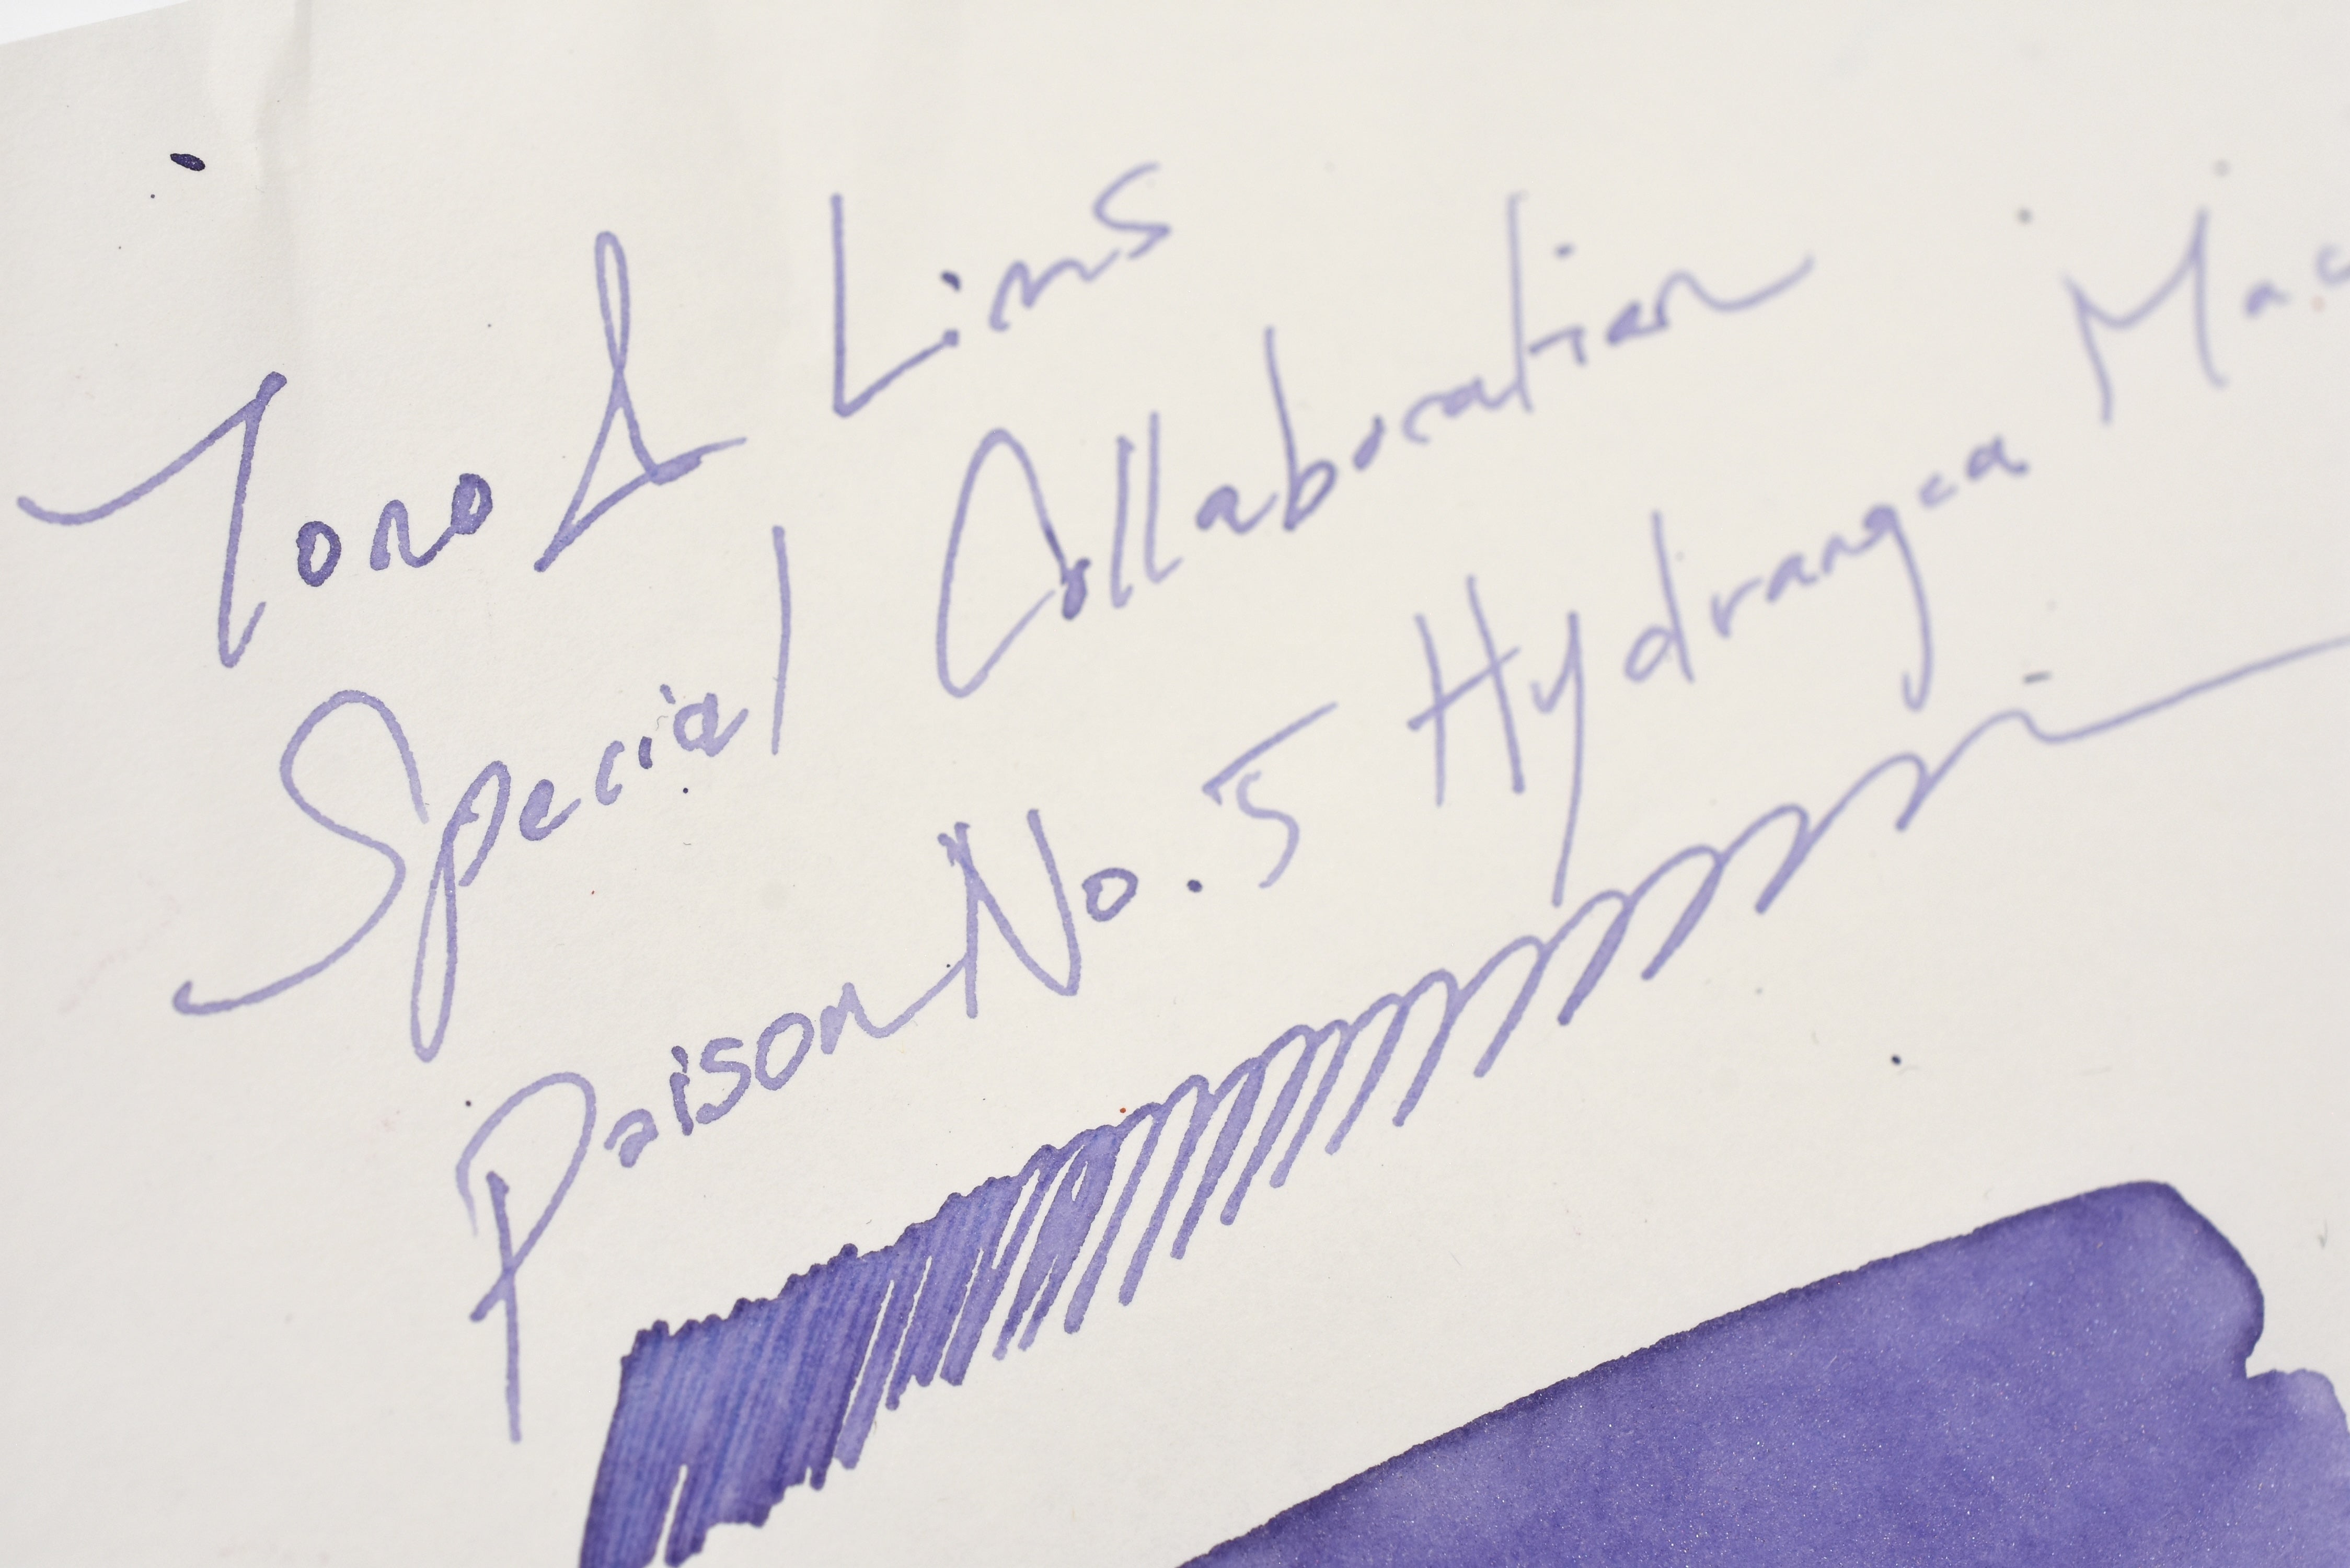 Tono & Lims
Special Collaboration
Paison No. 5 Hydrangea Mac